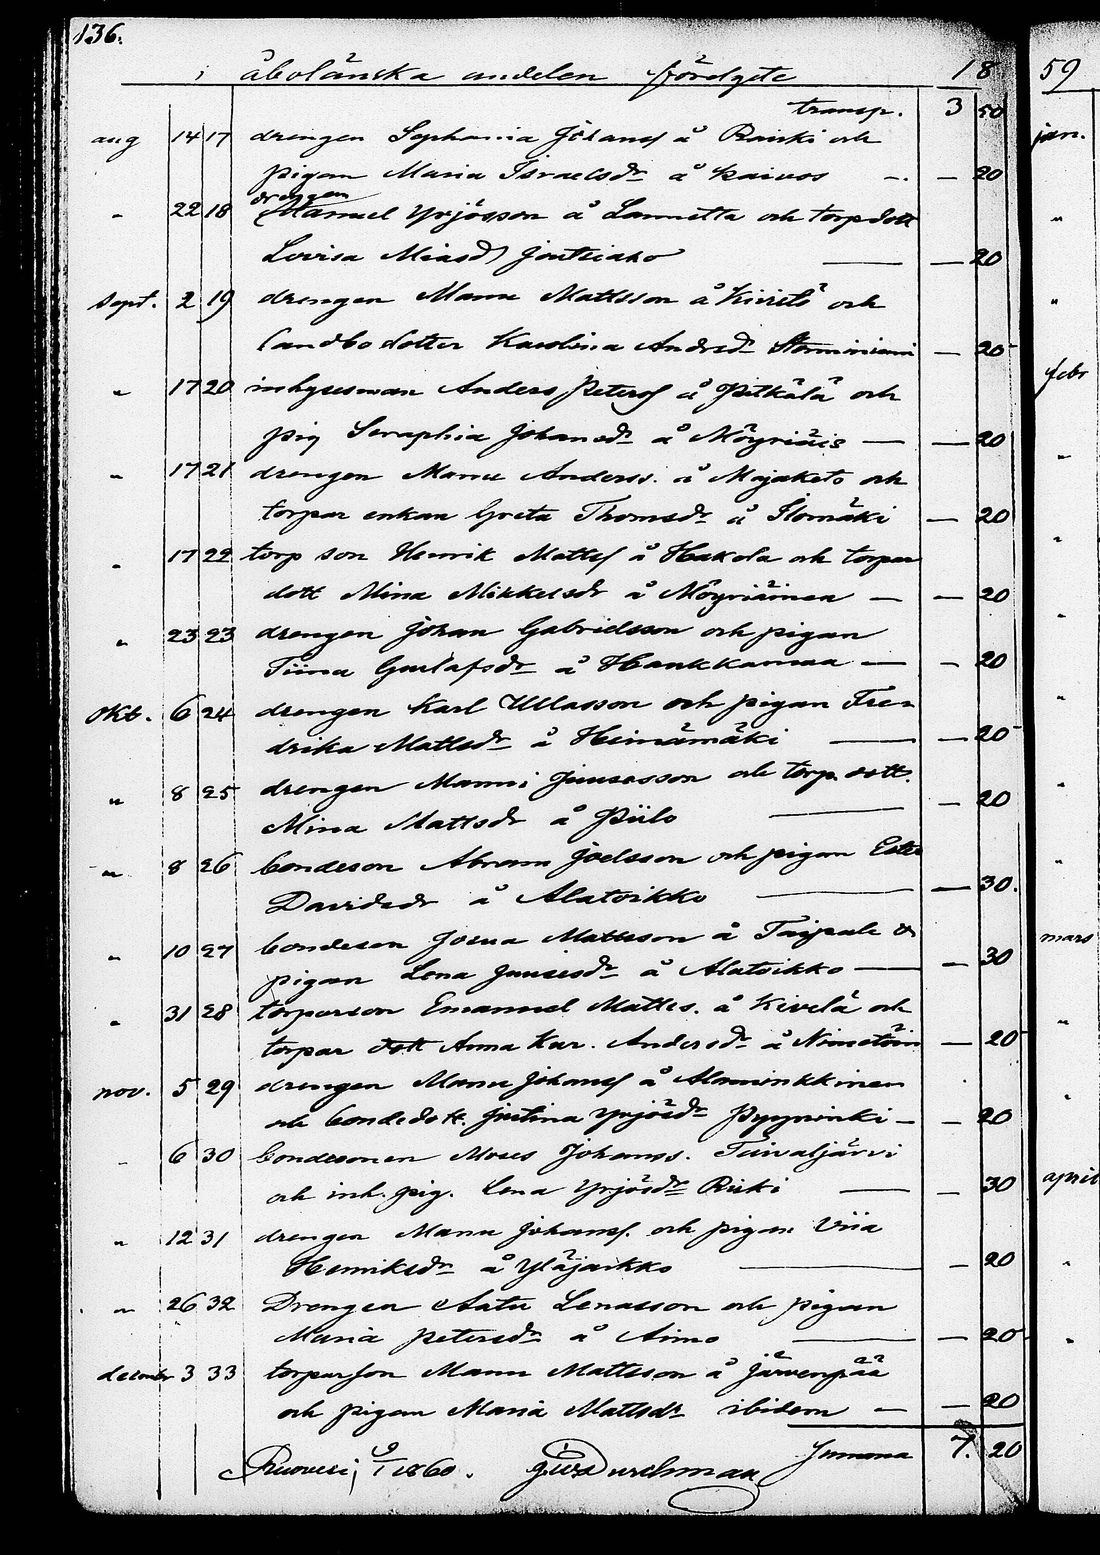 136.
i åboländska andelen fördgste 18 59
transp. 3 50
aug 14 17 drengen Sephania Johans å Ranki och
pigan Maria Israelsdr å Kaivos — 20
" 22 18 drengen Manuel Yrjösson å Lannetta och torpdott
Lovisa Miasdr Joutsiaho — 20
Sept. 2 19 drengen Manu Mattsson å Kivistö och
landbodotter Karolina Andrsdr — 20
" 17 20 inhysesman Anders Peters å Pitkälä och
pig Seraphia Johansdr å — 20
" 17 21 drengen Manu Anderss. å Majaketo och
torpar enkan Greta Thomsdr å Ilomäki — 20
" 17 22 torp son Henrik Matts å Hakola och torpar
dott Mina Mikkelsdr å — 20
" 23 23 drengen Johan Gabrielsson och pigan
Tiina Gustafsdr å Haukkamaa — 20
Okt. 6 24 drengen Karl Ullasson och pigan Fre-
drika Mattsdr å Heinämäki — 20
" 8 25 drengen Manni Juusosson och torp. dott.
Mina Mattsdr å Piilo — 20
" 8 26 bondeson Abram Joelsson och pigan Ester
Davidsdr å Alatoikko — 30.
" 10 27 bondeson Josua Mattsson å Taipale &
pigan Lena Juusesdr å Alatoikko — 30
" 31 28 torparson Emanuel Mattss. å Kivelä och
torpar dott Anna Kar. Andersdr å — 20
nov. 5 29 drengen Manu Johans å Alaminkkinen
och bondedott. Justina Yrjösdr Pyyninki — 20
6 30 bondesonen Moses Johanss. Tuivaljärvi
och inh. pig. Lena Yrjösdr Riiki — 30
" 12 31 drengen Manu Johans. och pigan Viia
Henriksdr å Yläjaikko — 20
" 26 32 Drengen Aatu Lenasson och pigan
Maria Petersdr å Aimo — 20
december 3 33 torparson Manu Mattsson å Järvenpää
och pigan Maria Mattsdr ibidem — 20
Summa 7. 20
Ruovesi, 9/1 1860.
jan.
"
"
febr
"
"
"
"
"
"
mars
"
"
april
"
"